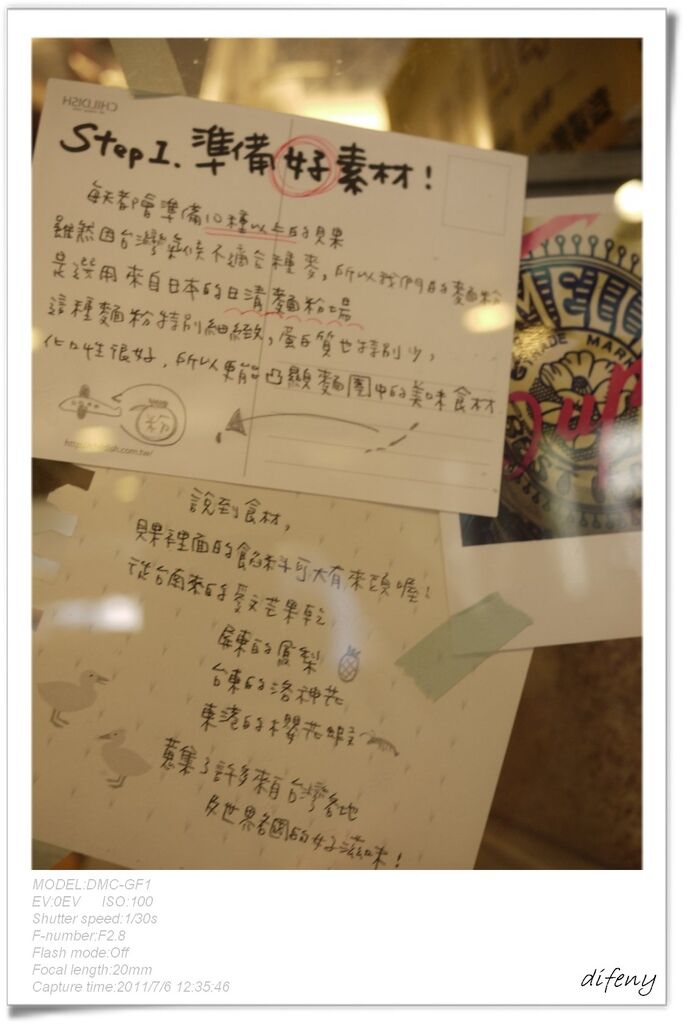 CHILDISH
Step 1. 準備好素材!
每天都會準備10種以上的貝果
雖然因台灣氣候不適合種麥,所以我們的麵粉
是選用來自日本的日清麵粉場
這種麵粉特別細緻,蛋白質也特別少,
化口性很好,所以更能凸顯麵團中的美味食材
粉
說到食材,
貝果裡面的餡料可大有來頭喔!
從台南來的愛文芒果乾
屏東的鳳梨
台東的洛神花
東港的櫻花蝦
蒐集了許多來自台灣各地
及世界各國的好滋味!
TRADE MARK
MODEL:DMC-GF1
EV:0EV ISO:100
Shutter speed:1/30s
F-number:F2.8
Flash mode:Off
Focal length:20mm
Capture time:2011/7/6 12:35:46
difeny